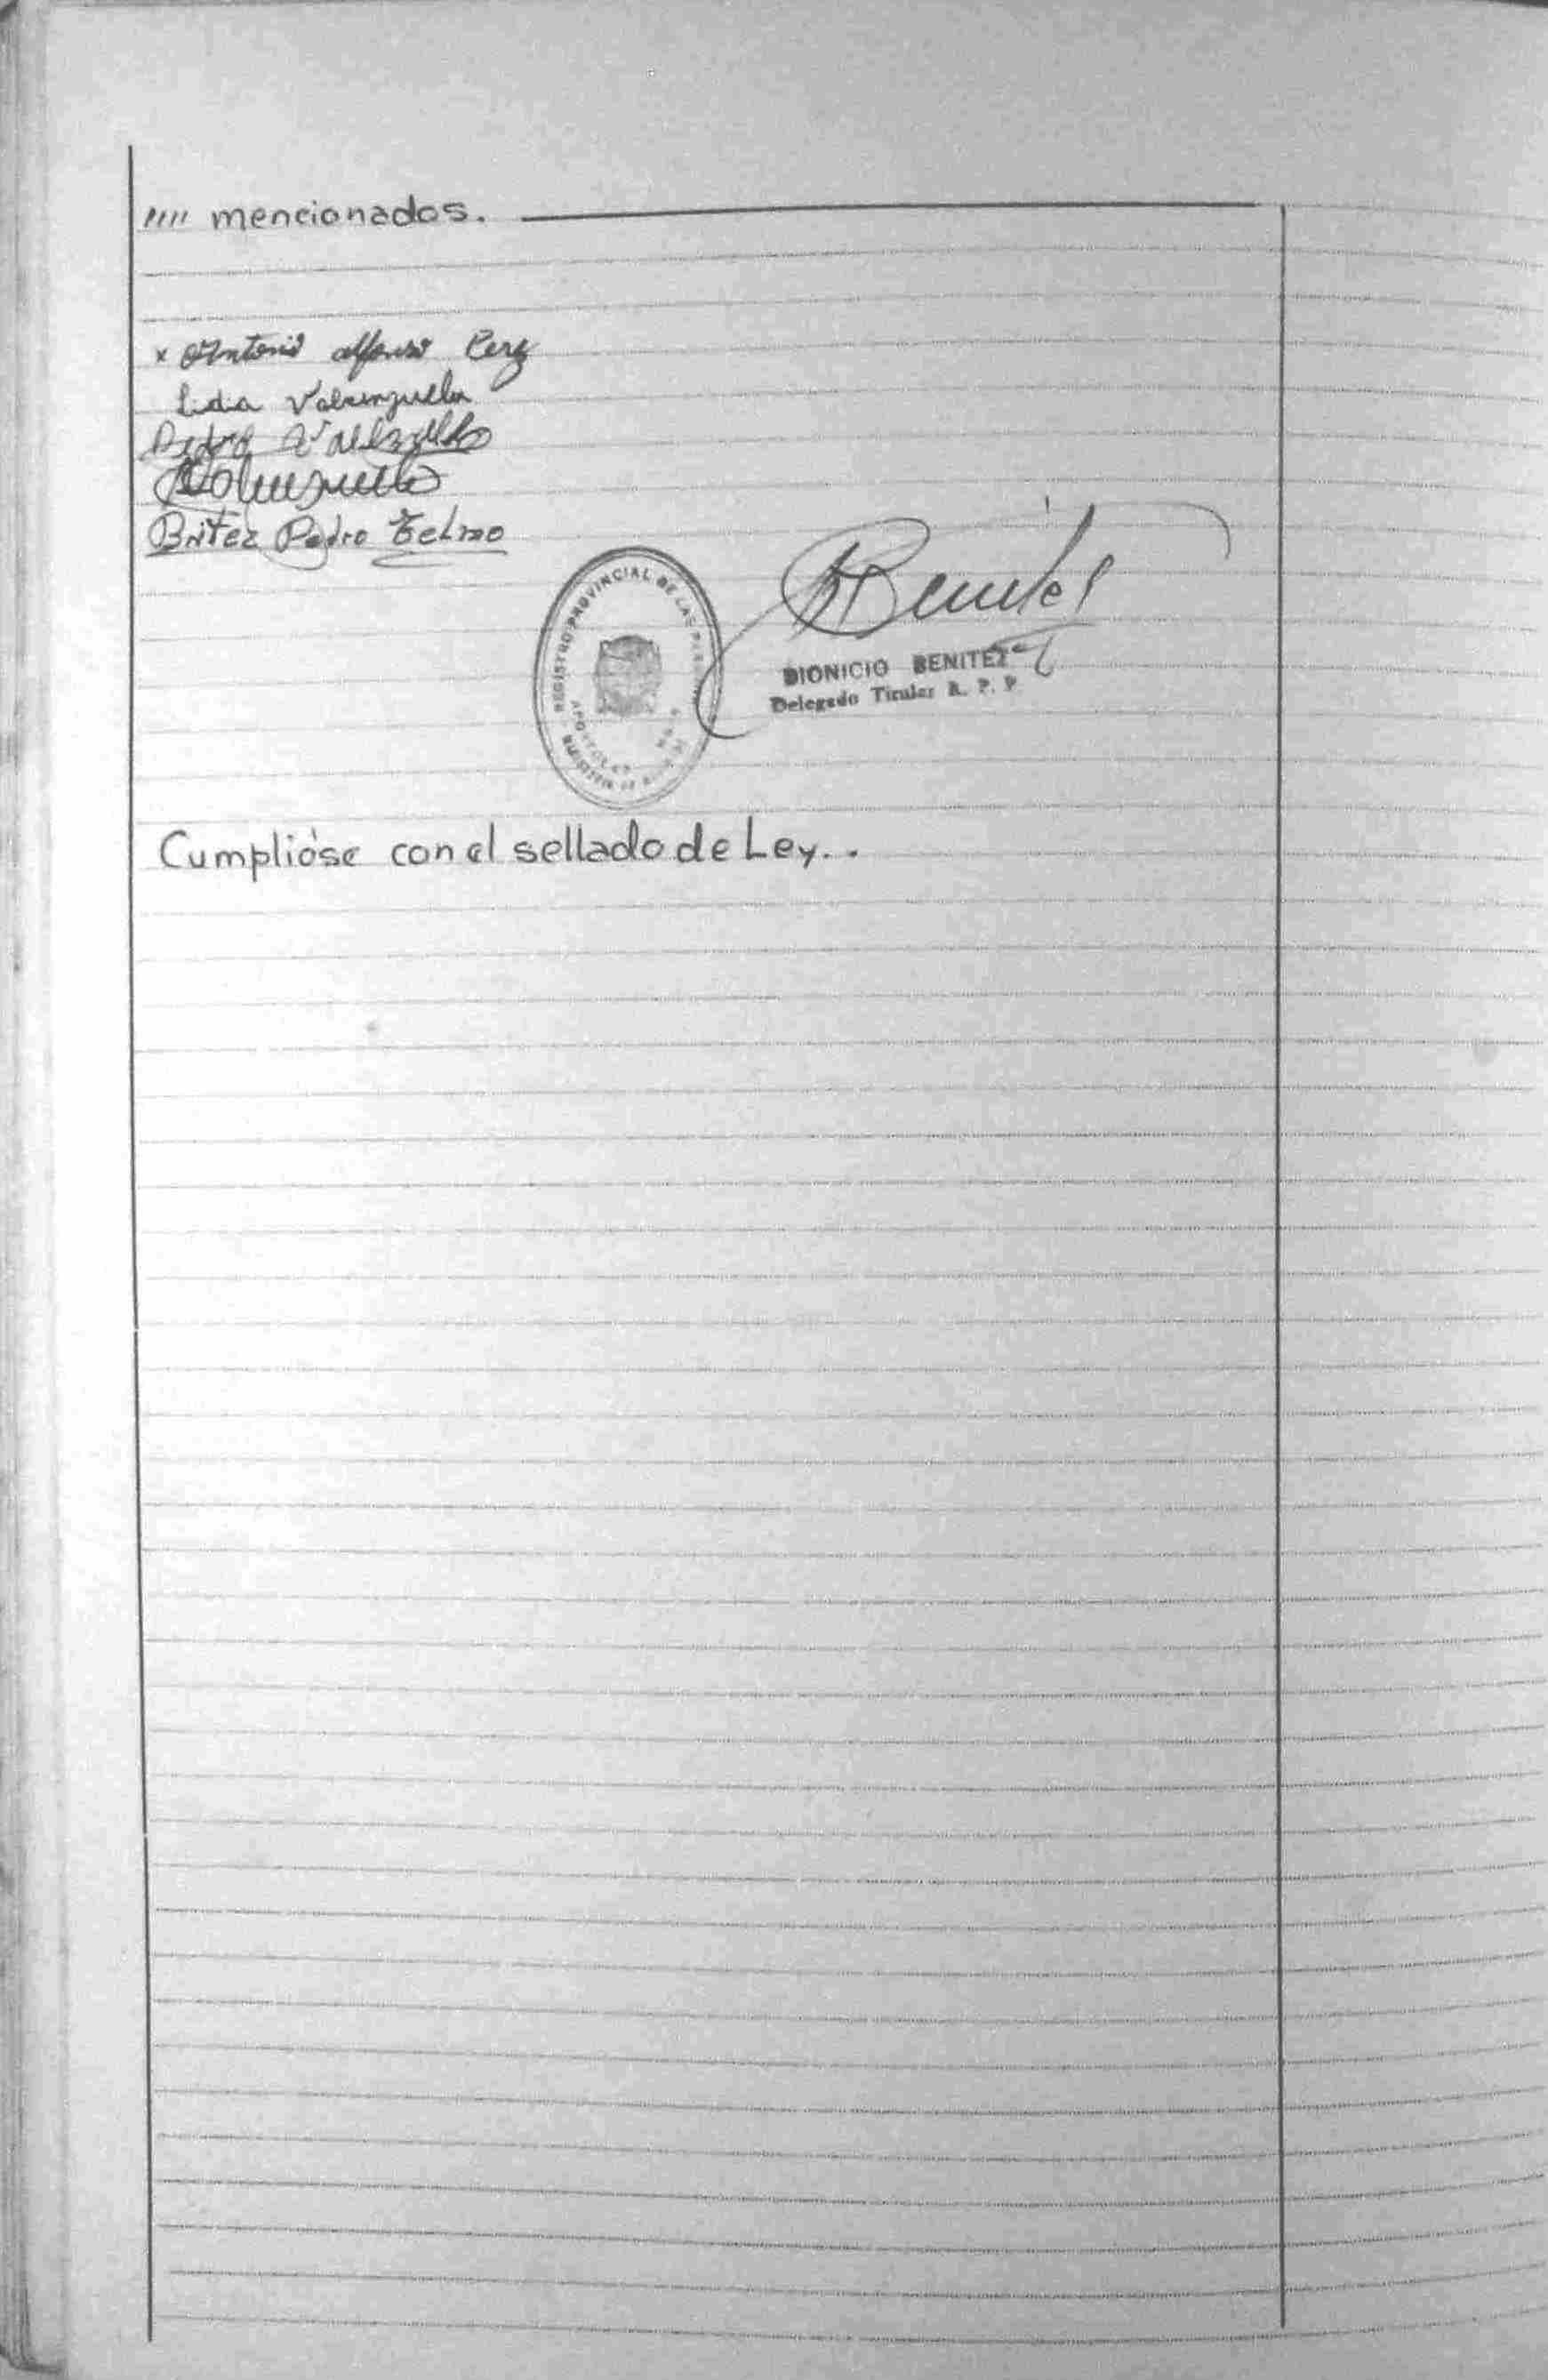 //// mencionados.
x Antonio Alfonso Perez
Lida Valenzuela
Pedro
Valenzuela
Britez Pedro Telmo
Benitez
REGISTRO PROVINCIAL DE LAS
APOSTOLES
MINISTERIO DE
DIONICIO BENITEZ
Delegado Titular R. P. P.
Cumplióse con el sellado de Ley. .